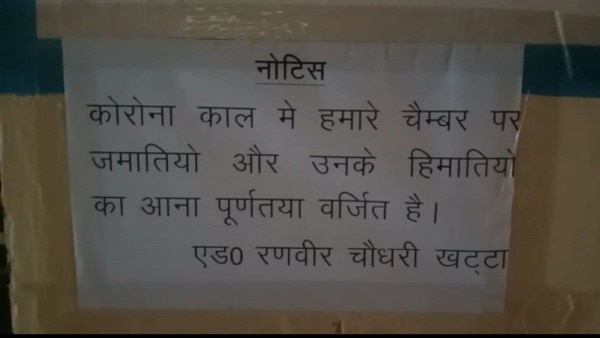 नोटिस
कोरोना काल मे हमारे चैम्बर पर
जमातियो और उनके हिमातियो
का आना पूर्णतया वर्जित है।
एड0 रणवीर चौधरी खट्टा